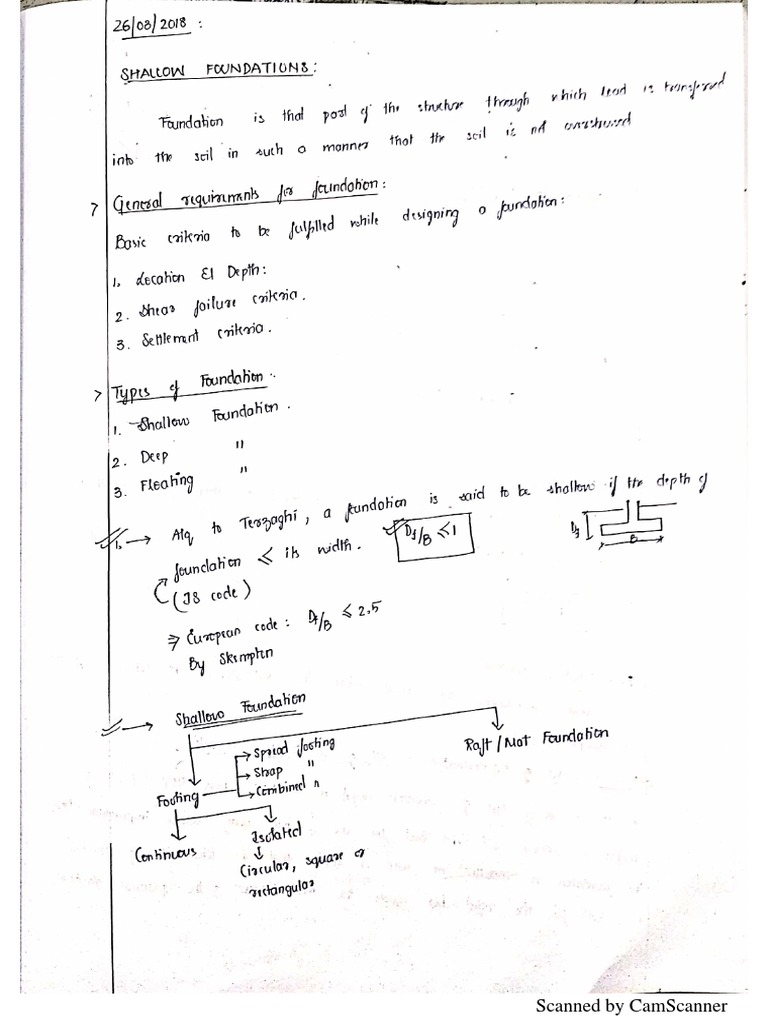 26/03/2018 :
SHALLOW FOUNDATIONS :
Foundation is that part of the structure through which load is transferred
into the soil in such a manner that the soil is not overstressed
> General requirements for foundation :
Basic criteria to be fulfilled while designing a foundation :
1. Location & Depth :
2. Shear failure criteria.
3. Settlement criteria.
> Types of Foundation :
1. Shallow Foundation.
2. Deep "
3. Floating "
1. → Atq to Terzaghi, a fundation is said to be shallow if the depth of
foundation ≤ its width. Df/B ≤ 1
Df
B
(IS code)
⇒ European code : Df/B ≤ 2.5
By Skempton
→ Shallow Foundation
Footing
Spread footing
Strap "
Combined "
Raft / Mat Foundation
Continuous
Isolated
Circular, square or
rectangular
Scanned by CamScanner